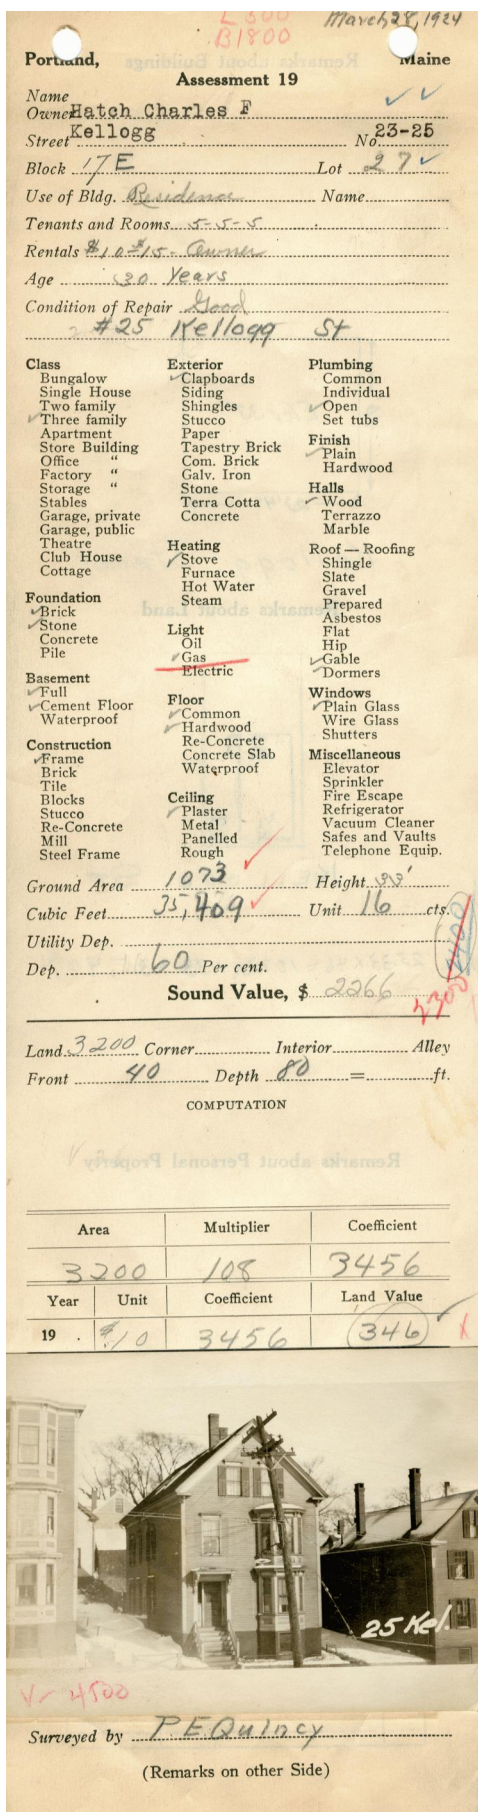 L 500
B1800
March 28, 1924
Portland, Maine
Assessment 19
Name
Owner Hatch Charles F
Street Kellogg No 23-25
Block 17E Lot 27
Use of Bldg. Residence Name
Tenants and Rooms 5-5-5
Rentals $10 $15- Owner
Age 30 Years
Condition of Repair Good
#25 Kellogg St
Class
Bungalow
Single House
Two family
✓Three family
Apartment
Store Building
Office "
Factory "
Storage "
Stables
Garage, private
Garage, public
Theatre
Club House
Cottage
Foundation
✓Brick
✓Stone
Concrete
Pile
Basement
✓Full
✓Cement Floor
Waterproof
Construction
✓Frame
Brick
Tile
Blocks
Stucco
Re-Concrete
Mill
Steel Frame
Exterior
✓Clapboards
Siding
Shingles
Stucco
Paper
Tapestry Brick
Com. Brick
Galv. Iron
Stone
Terra Cotta
Concrete
Heating
✓Stove
Furnace
Hot Water
Steam
Light
Oil
✓Gas
Electric
Floor
✓Common
✓Hardwood
Re-Concrete
Concrete Slab
Waterproof
Ceiling
✓Plaster
Metal
Panelled
Rough
Plumbing
Common
Individual
✓Open
Set tubs
Finish
✓Plain
Hardwood
Halls
✓Wood
Terrazzo
Marble
Roof — Roofing
Shingle
Slate
Gravel
Prepared
Asbestos
Flat
Hip
✓Gable
✓Dormers
Windows
✓Plain Glass
Wire Glass
Shutters
Miscellaneous
Elevator
Sprinkler
Fire Escape
Refrigerator
Vacuum Cleaner
Safes and Vaults
Telephone Equip.
Ground Area 1073 Height 33'
Cubic Feet 35,409 Unit 16 cts.
Utility Dep.
Dep. 60 Per cent.
Sound Value, $ 2266
2300
Land 3200 Corner Interior Alley
Front 40 Depth 80 = ft.
COMPUTATION
Area Multiplier Coefficient
3200 108 3456
Year Unit Coefficient Land Value
19 . $.10 3456 346
25 Kel.
V- 4500
Surveyed by P.E. Quincy
(Remarks on other Side)